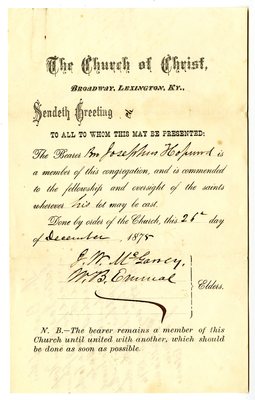 The Church of Christ,
BROADWAY, LEXINGTON, KY.,
Sendeth Greeting
TO ALL TO WHOM THIS MAY BE PRESENTED:
The Bearer Bro Josephus Hopwood is
a member of this congregation, and is commended
to the fellowship and oversight of the saints
wherever his lot may be cast.
Done by order of the Church, this day
of December, 1875
J. W. McGarvey,
W. B. Emmal
Elders.
N. B.—The bearer remains a member of this
Church until united with another, which should
be done as soon as possible.